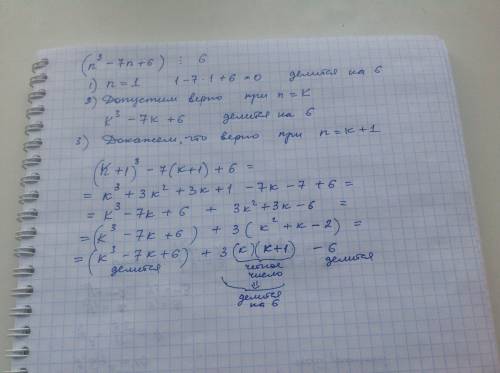 (n³ - 7n + 6) ⋮ 6
1) n = 1   1 - 7·1 + 6 = 0   делится на 6
2) Допустим верно при n = k
k³ - 7k + 6   делится на 6
3) Докажем, что верно при n = k + 1
(k + 1)³ - 7(k + 1) + 6 =
= k³ + 3k² + 3k + 1 - 7k - 7 + 6 =
= k³ - 7k + 6 + 3k² + 3k - 6 =
= (k³ - 7k + 6) + 3(k² + k - 2) =
= (k³ - 7k + 6) + 3(k)(k + 1) - 6
делится   четное   делится
число
⇓
делится
на 6